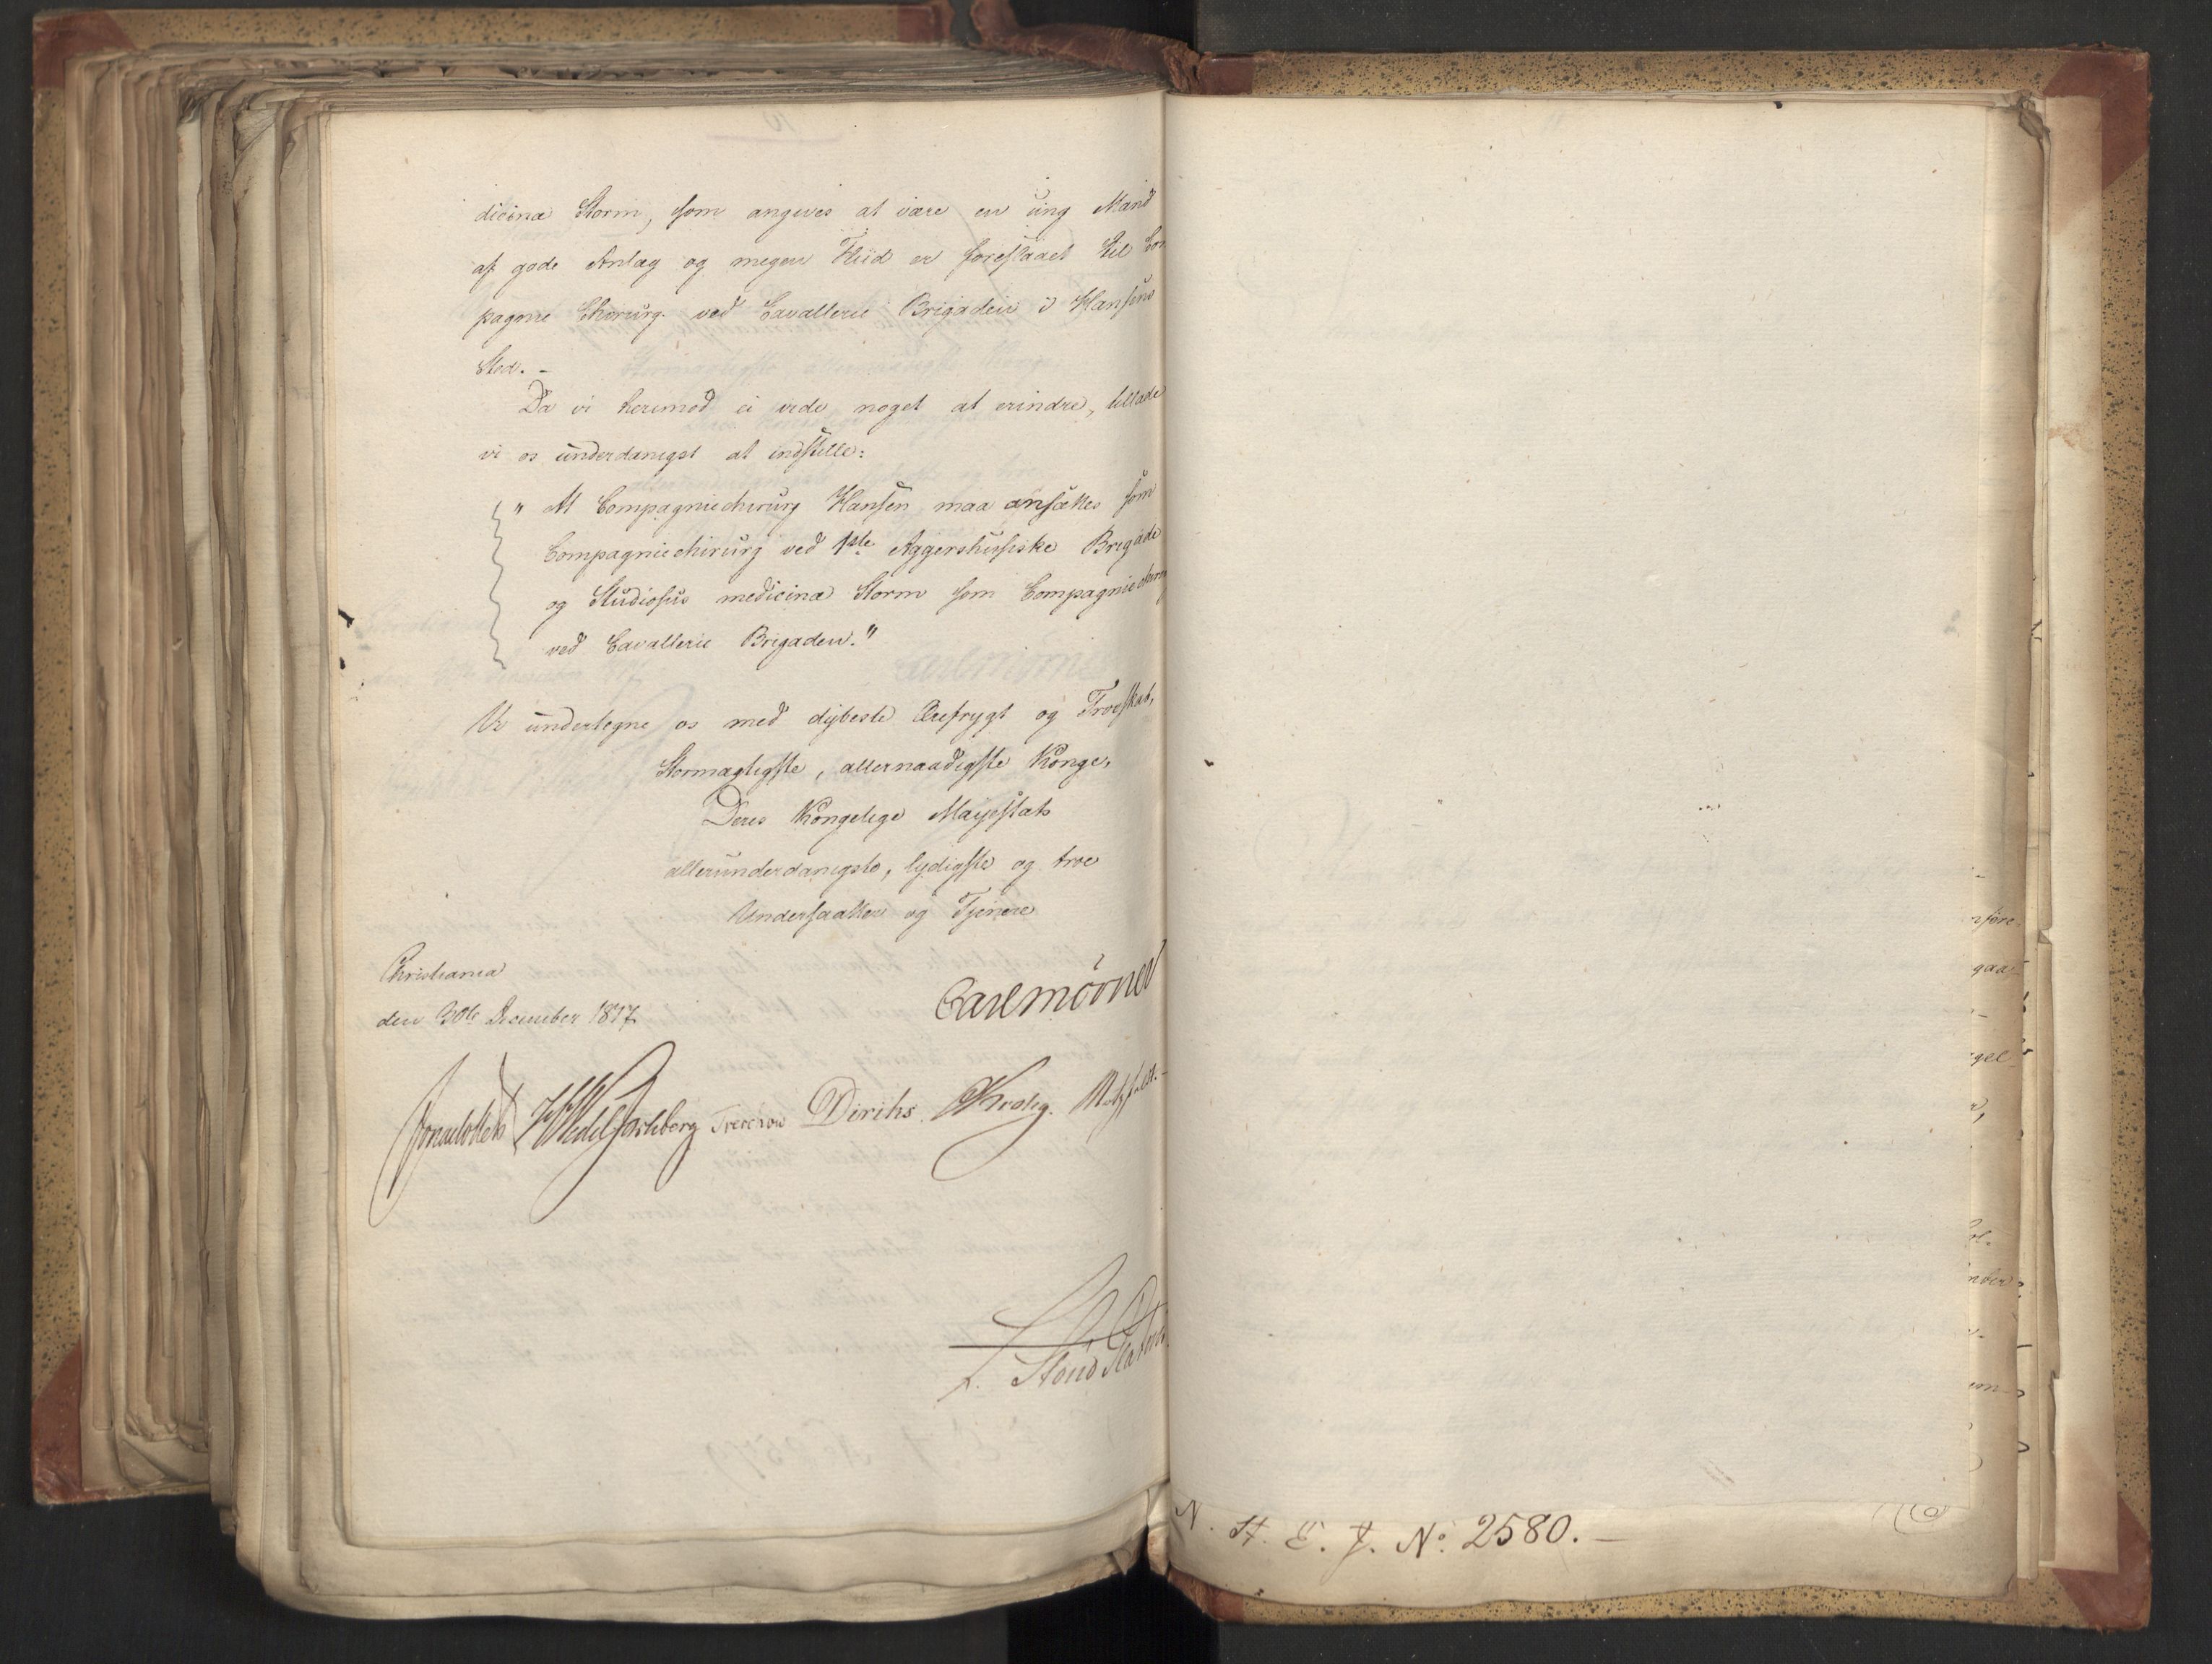 10
dicinæ Storm, som angives at være en ung Mand
af gode Anlæg og megen Fliid er foreslaaet til Com
pagnie Chirurg ved Cavallerie Brigaden i Hansens
Sted. –
Da vi herimod ei vide noget at erindre, tillade
vi os underdanigst at indstille:
" At Compagniechirurg Hansen maa ansættes som
Compagniechirurg ved 1ste Aggershusiske Brigade
og Studiosus medicinæ Storm som Compagniechirurg
ved Cavallerie Brigaden."
Vi undertegne os med dybeste Ærefrygt og Troeskab,
Stormægtigste, allernaadigste Konge,
Deres Kongelige Majestæts
allerunderdanigste, lydigste og troe
Undersaatter og Tjenere
Christiania
den 30te December 1817
Carl Mörner
Jonas Collett HWedel Jarlsberg Treschow Diriks Krohg. Motzfeldt. –
N. St. E. J. No: 2580. –